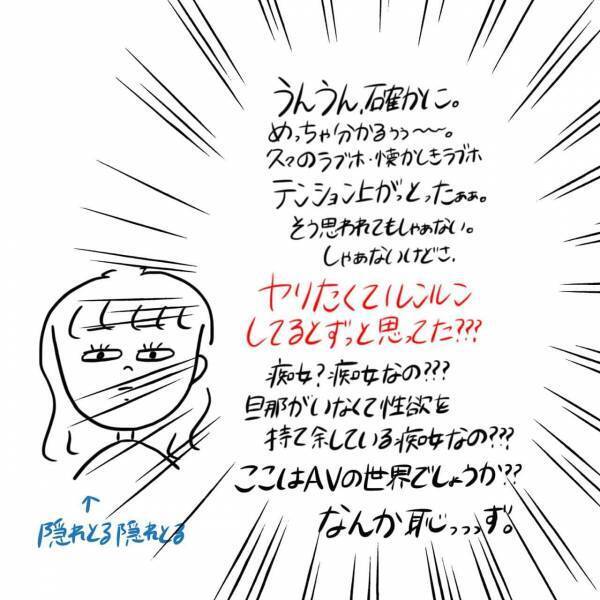 うんうん、確かに。
めっちゃ分かるぅぅ〜〜。
久々のラブホ・懐かしきラブホ
テンション上がっとったぁぁ。
そう思われてもしゃぁない。
しゃぁないけどさ、
ヤりたくてルンルン
してるとずっと思ってた???
痴女?痴女なの???
旦那がいなくて性欲を
持て余している痴女なの???
ここはAVの世界でしょうか??
なんか恥っっっず。
↑
隠れとる隠れとる